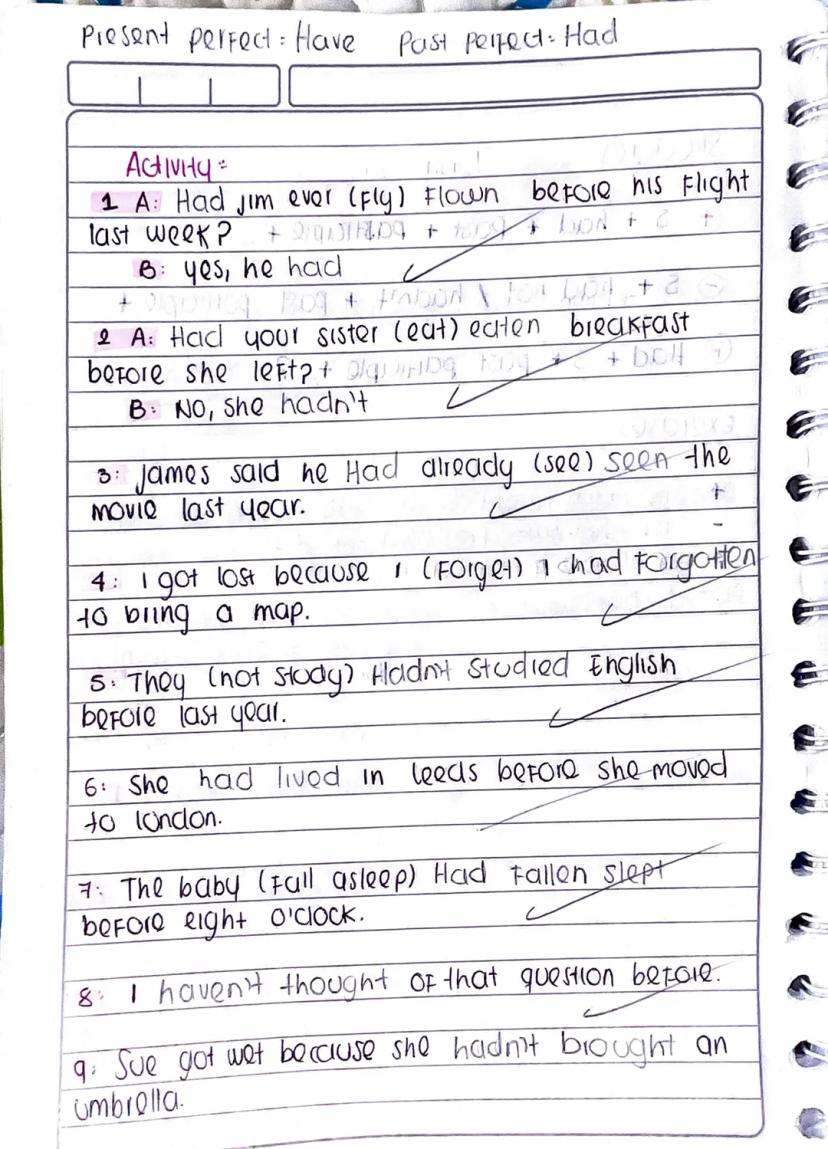 Present perfect: Have Past perfect: Had
Activity:
1 A: Had Jim ever (fly) flown before his flight
last week?
B: yes, he had
2 A: Had your sister (eat) eaten breakfast
before she left?
B: No, she hadn't
3: James said he Had already (see) seen the
movie last year.
4: I got lost because I (Forget) I had Forgotten
to bring a map.
5: They (not study) Hadn't studied English
before last year.
6: She had lived in leeds before she moved
to london.
7: The baby (Fall asleep) Had Fallen slept
before eight o'clock.
8: I haven't thought of that question before.
9: Sue got wet because she hadn't brought an
umbrella.